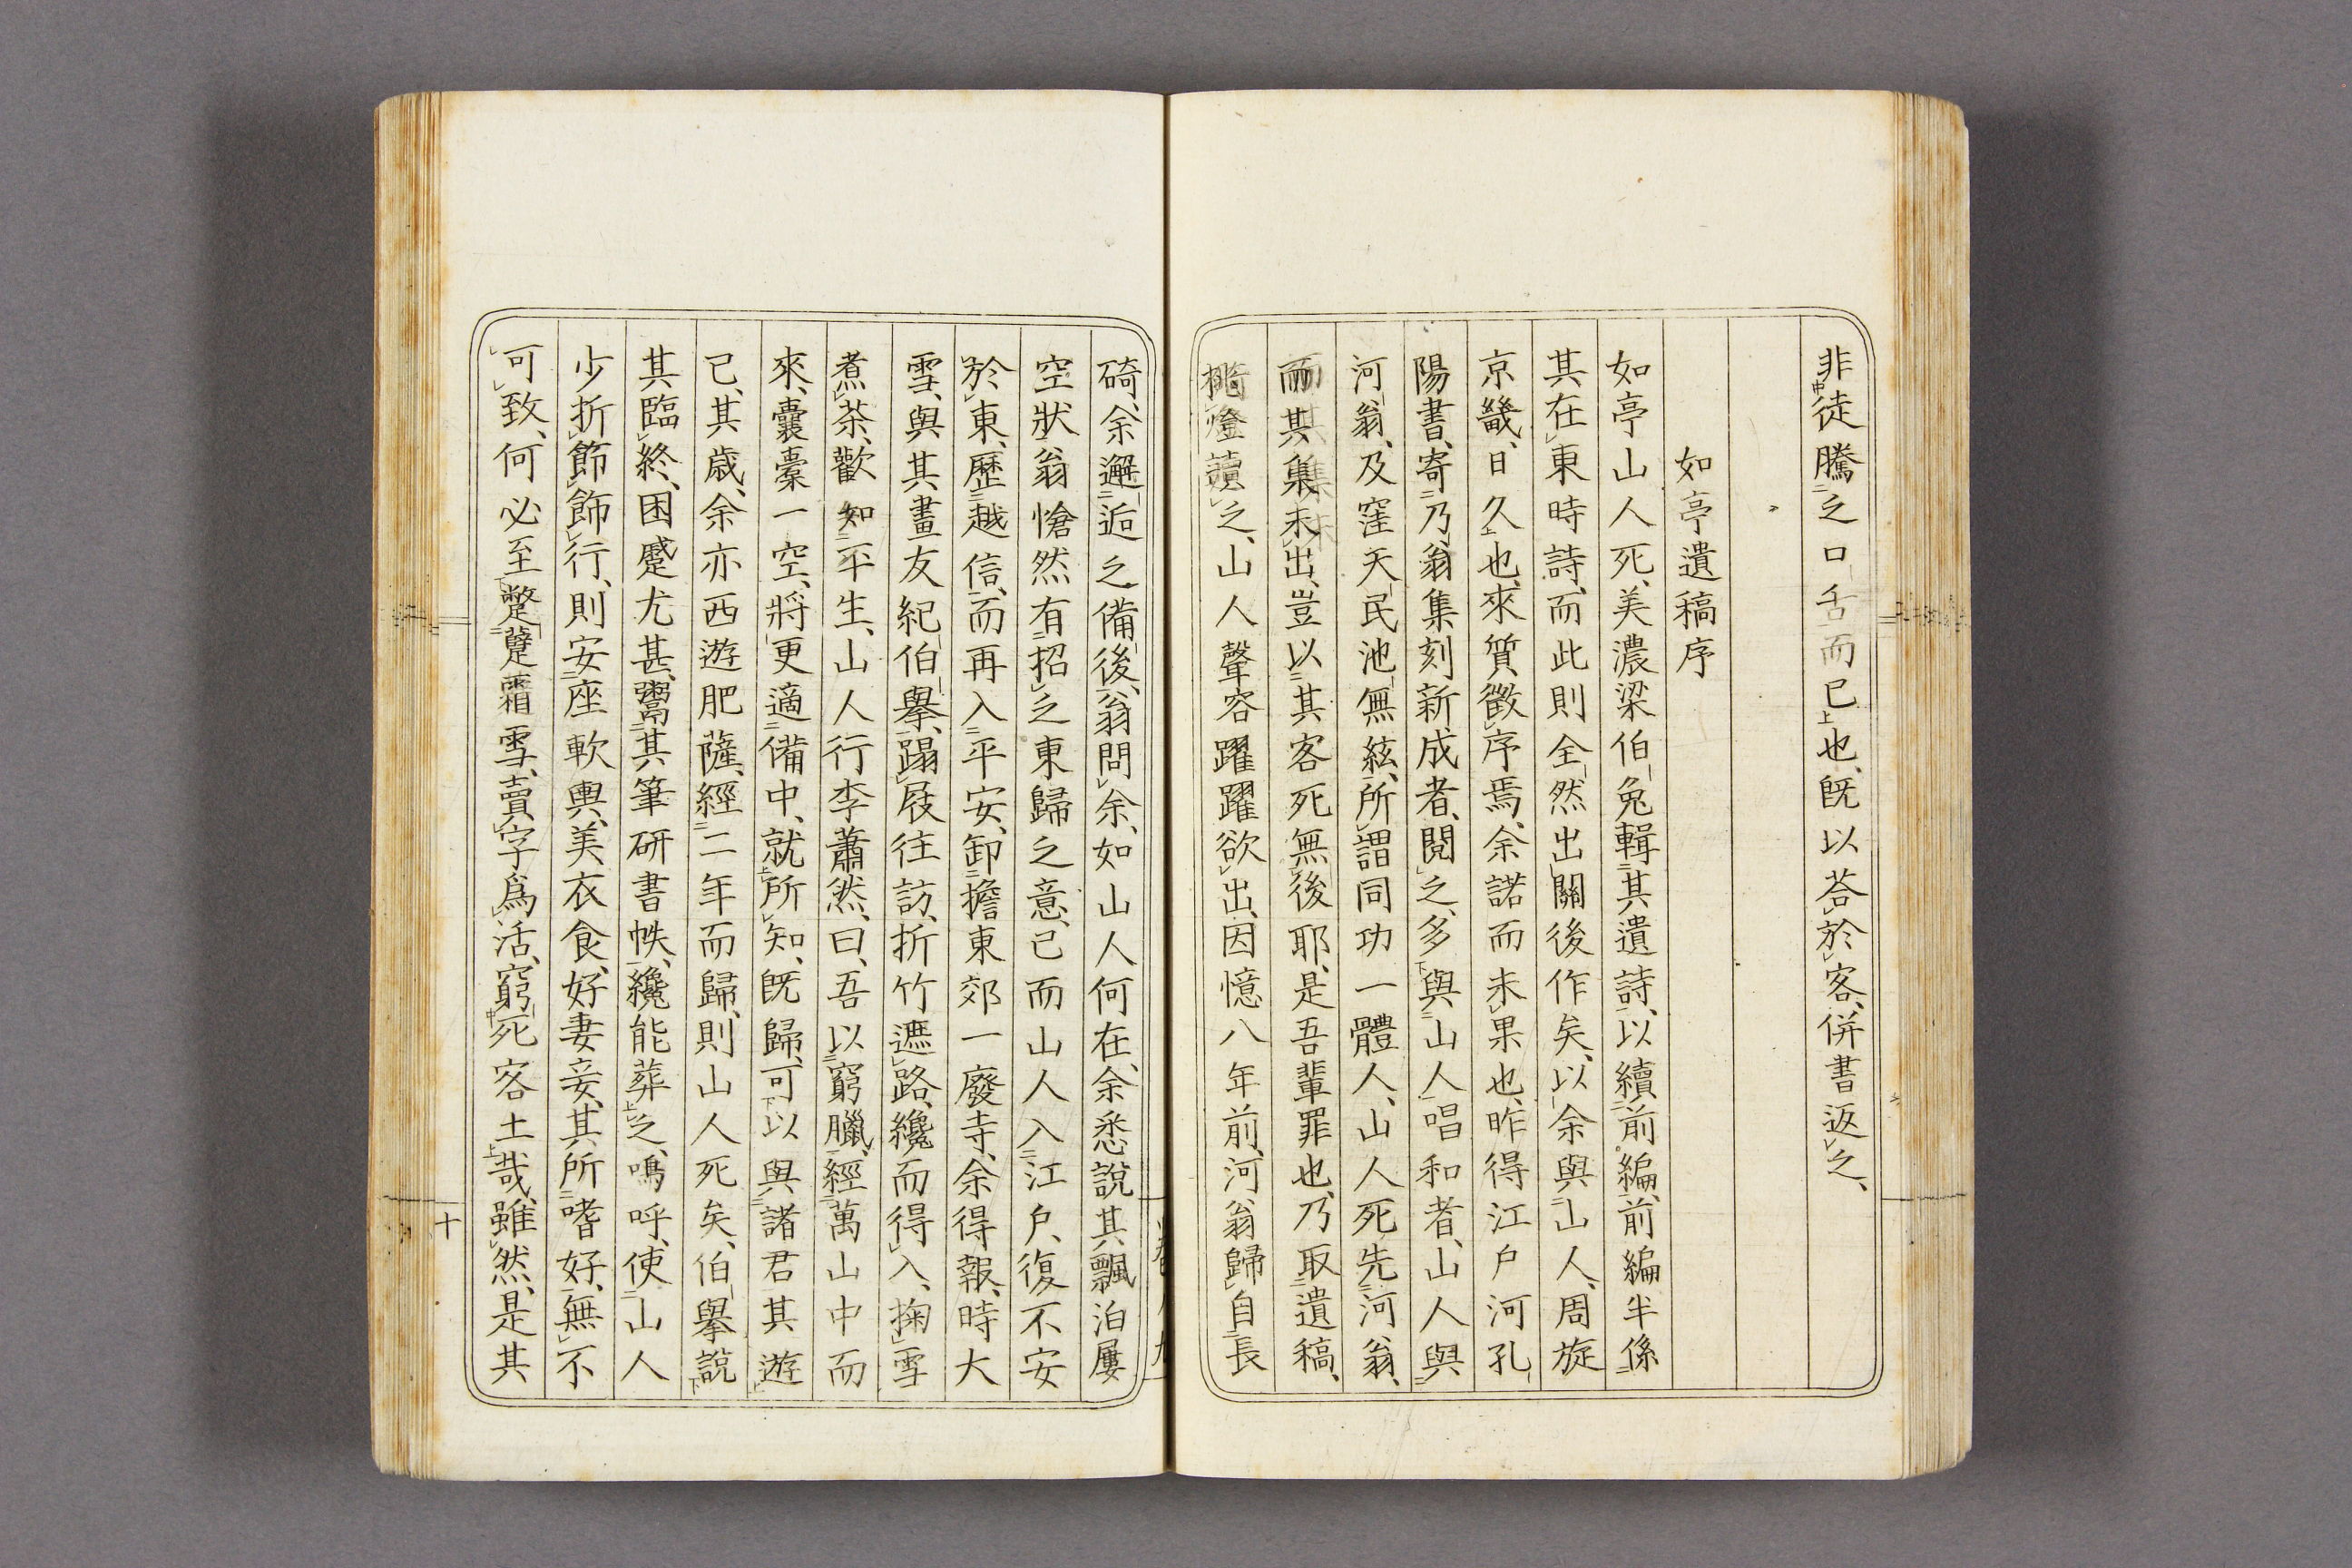 非徒騰之口舌而已也、既以荅於客、併書返之、
如亭遺稿序
如亭山人死、美濃梁伯兔輯其遺詩、以續前編、前編半係
其在東時詩、而此則全然出關後作矣、以余與山人、周旋
京畿、日久也、來質徵序焉、余諾而未果也、昨得江戸河孔
陽書、寄乃翁集刻新成者、閲之、多與山人唱和者、山人與
河翁、及窪天民池無絃、所謂同功一體人、山人死先河翁、
而其集未出、豈以其客死無後耶、是吾輩罪也、乃取遺稿、
挑燈讀之、山人聲容躍躍欲出、因憶八年前、河翁歸自長
碕、余邂逅之備後、翁問余、如山人何在、余悉說其飄泊屢
空狀、翁愴然有招之東歸之意、已而山人入江戸、復不安
於東、歷越信、而再入平安、卸擔東郊一廢寺、余得報、時大
雪、與其畫友紀伯擧、蹋屐往訪、折竹遮路、纔而得入、掬雪
煮茶、歡如平生、山人行李蕭然、曰、吾以窮臘、經萬山中而
來、囊橐一空、將更適備中、就所知、既歸、可以與諸君其遊
已、其歲、余亦西遊肥薩、經二年而歸、則山人死矣、伯擧說
其臨終、困蹙尤甚、鬻其筆研書帙、纔能葬之、嗚呼、使山人
少折節飾行、則安座軟輿、美衣食、好妻妾、其所嗜好、無不
可致、何必至蹩躠霜雪、賣字爲活、窮死客土哉、雖然、是其
十